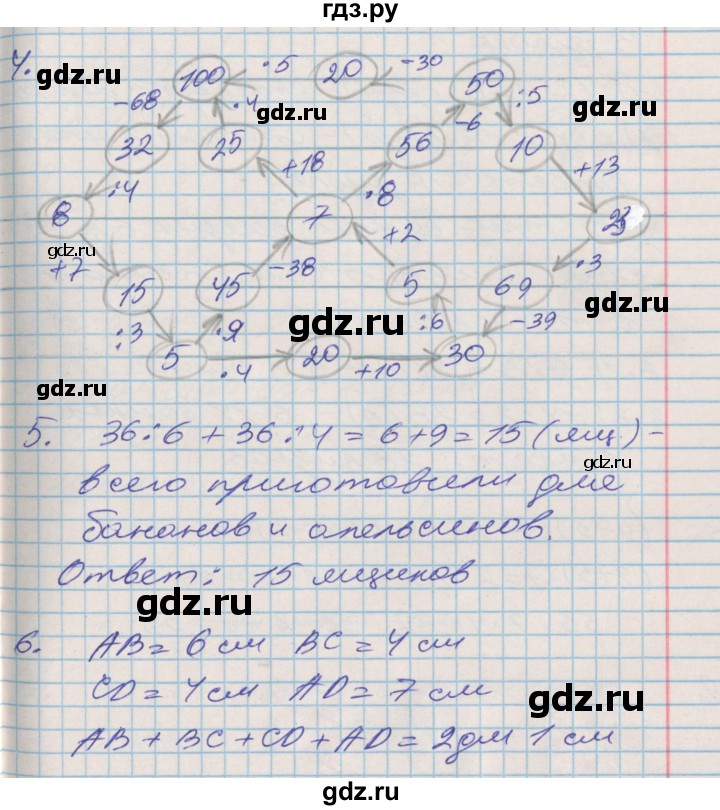 гдз.ру
4. 100 :5 20 -30 50
gdz.ru -68 ·4 gdz.ru :5 gdz.ru
32 25 56 -6 10
:4 +18 ·8 +13
8 7 23
gdz.ru +7 -38 +2 ·3
15 45 5 69 gdz.ru
:3 ·9 gdz.ru :6 -39
5 ·4 20 +10 30
gdz.ru
5. 36:6 + 36:4 = 6+9 = 15 (ящ.) -
gdz.ru
всего приготовили для
бананов и апельсинов.
Ответ: 15 ящиков
gdz.ru gdz.ru
6. AB = 6 см BC = 4 см
CD = 4 см AD = 7 см
gdz.ru gdz.ru
AB + BC + CD + AD = 2дм 1 см